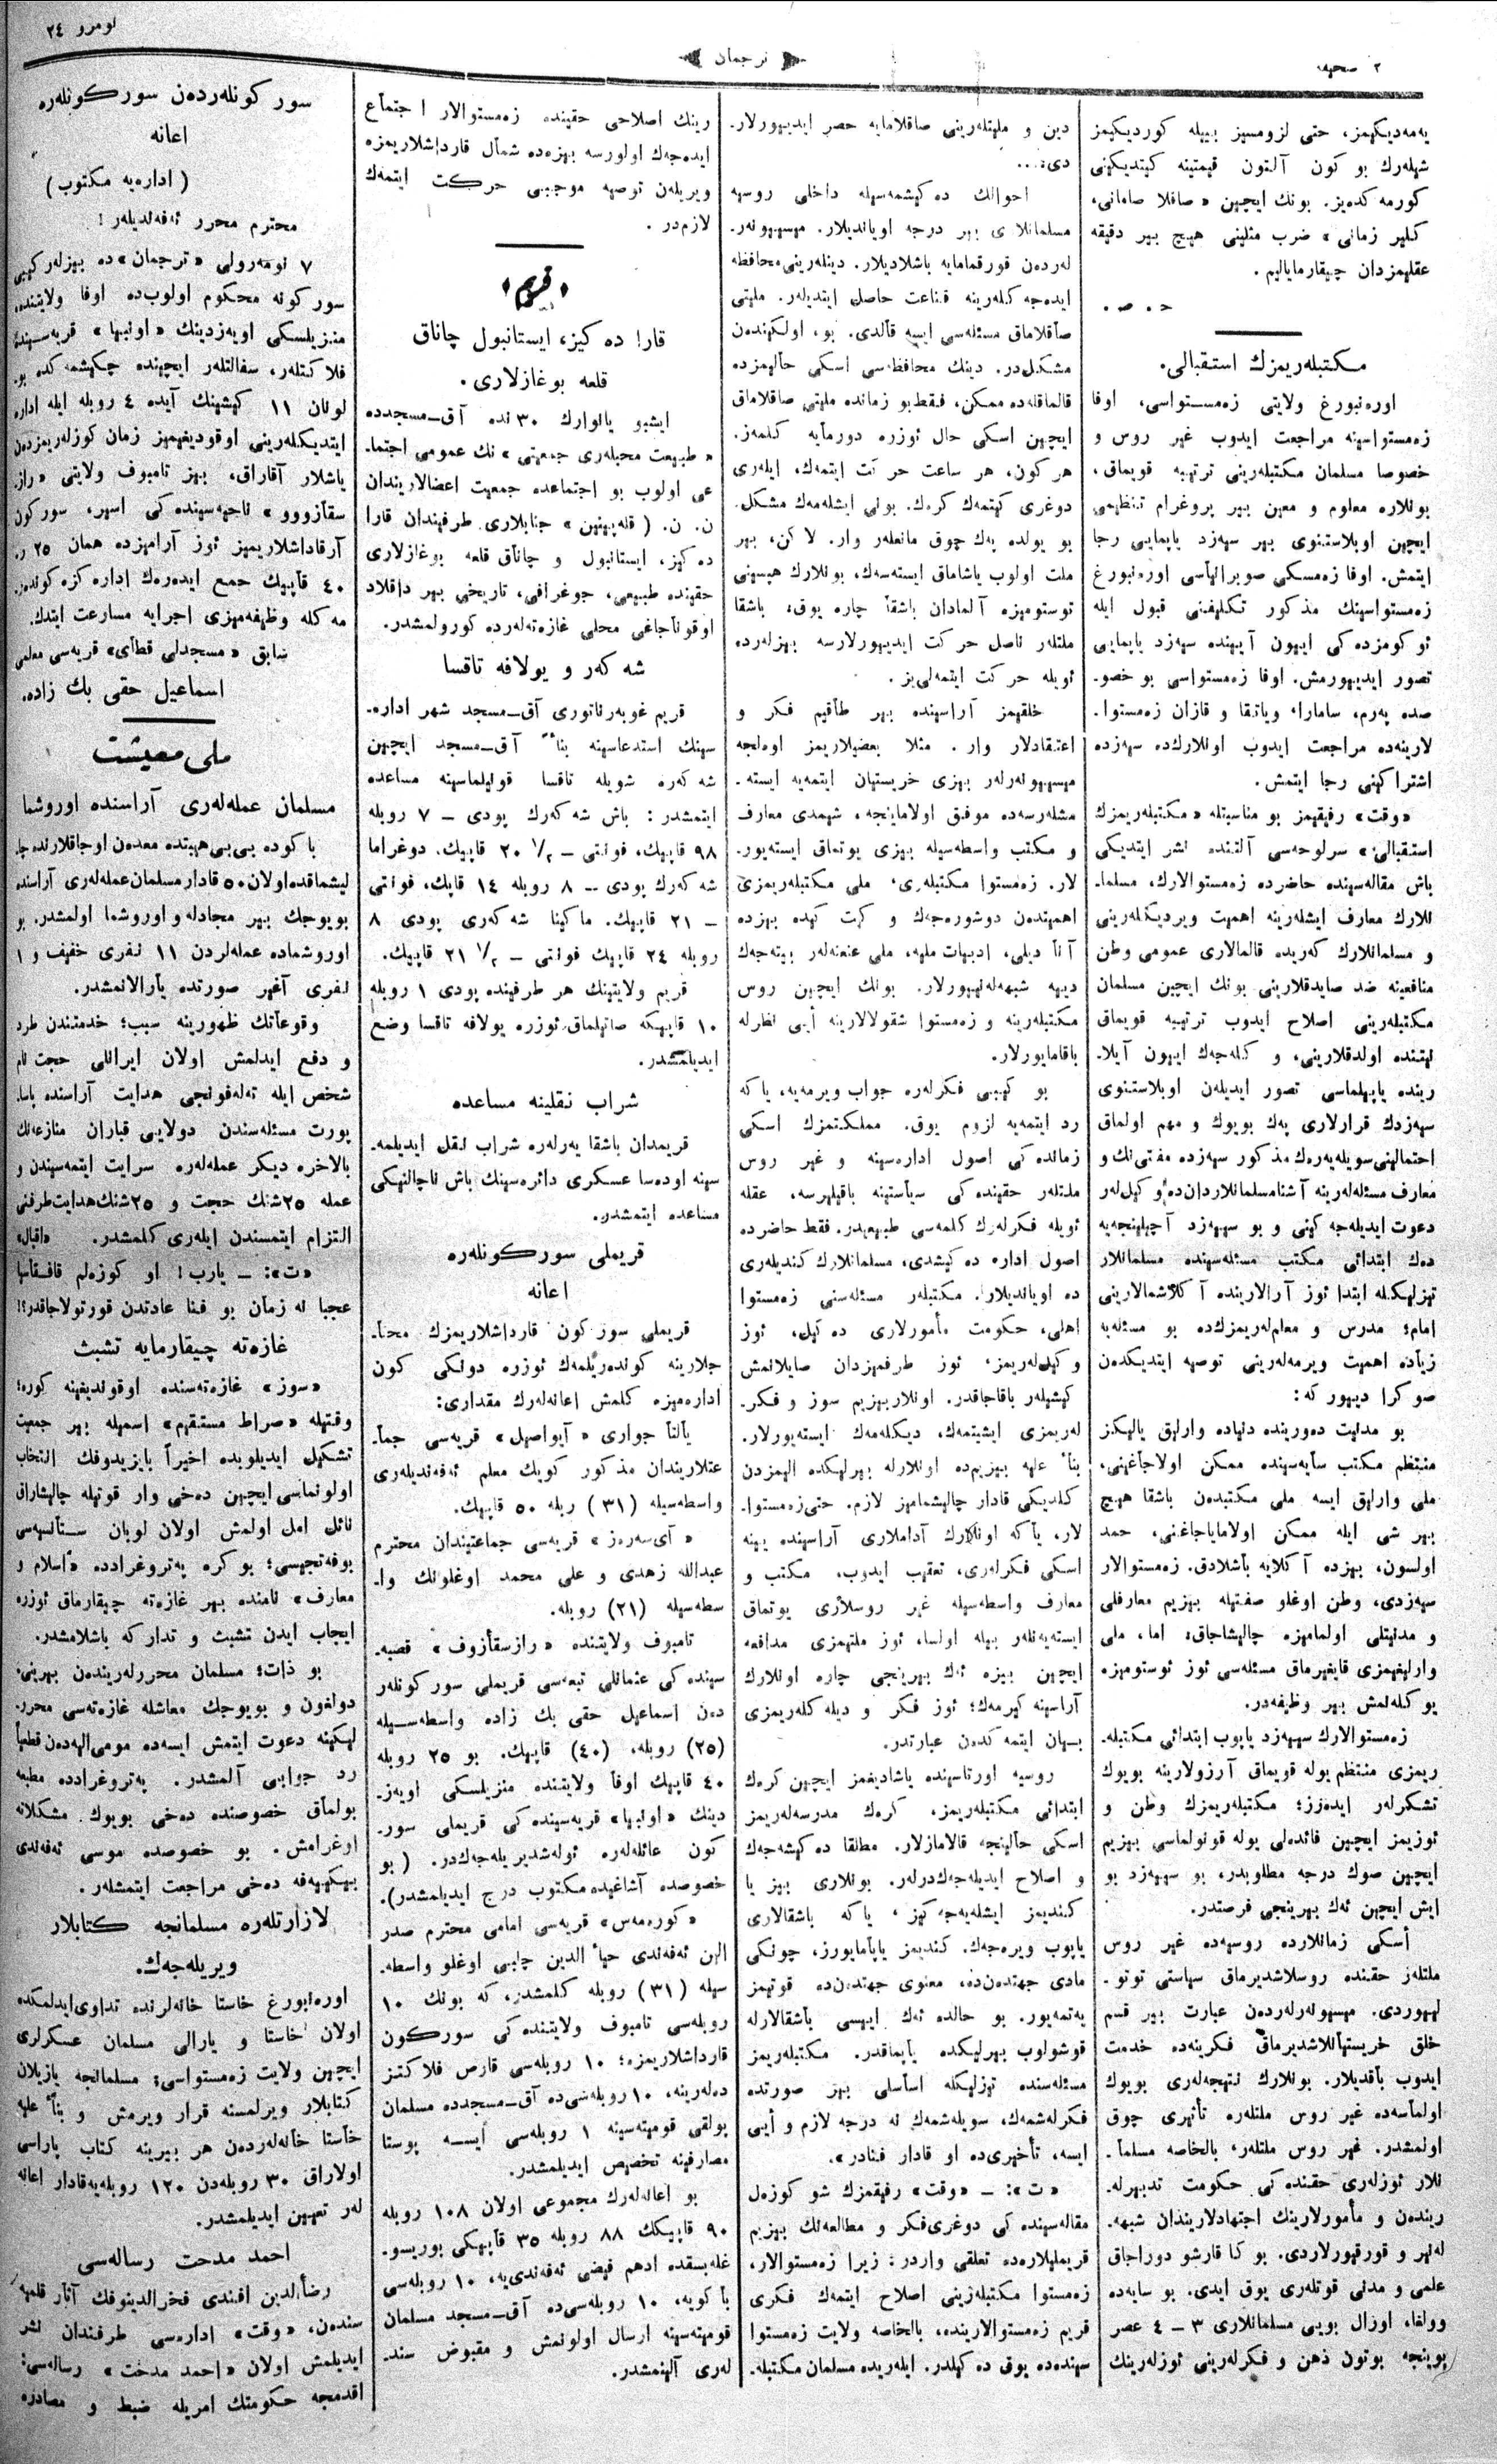 ۲ صحیفه
ترجمان
نومرو ۲۴
یه‌مه‌دیکهمز، حتی لزومسیز بییله کوردیکیمز
شیله‌رك بو کون آلتون قیمتینه کیتدیکینی
کورمه کده‌یز. بونك ایچین «صاقلا صامانی،
کلیر زمانی» ضرب مثلینی هیچ بیر دقیقه
عقلیمزدان چیقارمایالیم.
ح. ص.
مکتبله‌ریمزك استقبالی.
اوره‌نبورغ ولایتی زه‌مستواسی، اوفا
زه‌مستواسینه مراجعت ایدوب غیر روس و
خصوصا مسلمان مکتبله‌رینی ترتیبه قویماق،
بونلاره معلوم و معین بیر پروغرام تنظیمی
ایچین اوبلاستنوی بیر سیه‌زد یاپمایی رجا
ایتمش. اوفا زه‌مسکی صوبرانیأسی اوره‌نبورغ
زه‌مستواسینك مذکور تکلیفنی قبول ایله
ئوکومزده‌کی اییون آیینده سیه‌زد یاپمایی
تصور ایدییورمش. اوفا زه‌مستواسی بو خصو-
صده په‌رم، سامارا، ویاتقا و قازان زه‌مستوا-
لارینه‌ده مراجعت ایدوب اونلارك‌ده سیه‌زده
اشتراکینی رجا ایتمش.
«وقت» رفیقیمز بو مناسبتله «مکتبله‌ریمزك
استقبالی» سرلوحه‌سی آلتنده نشر ایتدیکی
باش مقاله‌سینده حاضرده زه‌مستوالارك، مسلما-
نلارك معارف ایشله‌رینه اهمیت ویردیکله‌رینی
و مسلمانلارك که‌ریده قالمالاری عمومی وطن
منافعینه ضد صایدقلارینی بونك ایچین مسلمان
مکتبله‌رینی اصلاح ایدوب ترتیبه قویماق
نیتنده اولدقلارینی، و کله‌جه‌ك اییون آیلا-
رینده یاپیلماسی تصور ایدیله‌ن اوبلاستنوی
سیه‌زدك قرارلاری په‌ك بویوك و مهم اولماق
احتمالینی سویله‌یه‌رك مذکور سیه‌زده مفتی‌نك و
معارف مسئله‌له‌رینه آشنا مسلمانلاردان‌ده وکیل‌له‌ر
دعوت ایدیله‌جه کینی و بو سیه‌زد آچیلینجه‌یه
ده‌ك ابتدائی مکتب مسئله‌سینده مسلمانلار
تیزلیکله ابتدا ئوز آرالارینده آکلاشمالارینی
امام؛ مدرس و معلم‌له‌ریمزك‌ده بو مسئله‌یه
زیاده اهمیت ویرمه‌له‌رینی توصیه ایتدیکدن
صوکرا دییور که:
بو مدنیت ده‌ورینده دنیاده وارلیق یالیکز
منتظم مکتب سایه‌سینده ممکن اولاجأغینی،
ملی وارلیق ایسه ملی مکتبدن باشقا هیچ
بیر شی ایله ممکن اولامایاجاغنی، حمد
اولسون، بیزده آکلایه باشلادق. زه‌مستوالار
سیه‌زدی، وطن اوغلو صفتیله بیزیم معارفلی
و مدنیتلی اولمامیزه چالیشاجاق؛ اما، ملی
وارلیغیمزی قایغیرماق مسئله‌سی ئوز ئوستومیزه
یوکله‌لمش بیر وظیفه‌در.
زه‌مستوالارك سیه‌زد یاپوب ابتدائی مکتبله-
ریمزی منتظم یوله قویماق آرزولارینه بویوك
تشکرله‌ر ایده‌رز؛ مکتبله‌ریمزك وطن و
ئوزیمز ایچین فائده‌لی یوله قونولماسی بیزیم
ایچین صوك درجه مطلوبدر، بو سیه‌زد بو
ایش ایچین ئه‌ك بیرینجی فرصتدر.
أسکی زمانلارده روسیه‌ده غیر روس
ملتله‌ر حقنده روسلاشدیرماق سیاستی توتو-
لییوردی. میسیونه‌رله‌ردن عبارت بیر قسم
خلق خریستیأنلاشدیرماق فکرینه‌ده خدمت
ایدوب بأقدیلار. بونلارك نتیجه‌له‌ری بویوك
اولمأسه‌ده غیر روس ملتله‌ره تأثیری چوق
اولمشدر. غیر روس ملتله‌ر، بالخاصه مسلمأ-
نلار ئوزله‌ری حقنده کی حکومت تدبیرله-
ریندن و مأمورلارینك اجتهادلاریندان شبهه-
له‌نیر و قورقیورلاردی. بو کا قارشو دوراجاق
علمی و مدنی قوتله‌ری یوق ایدی. بو سایه‌ده
وولغا، اورال بویی مسلمانلاری ۳ – ٤ عصر
بوینجه بوتون ذهن و فکرله‌رینی ئوزله‌رینك
دین و ملیتله‌رینی صاقلامایه حصر ایدییورلار-
دی...
احوالك ده‌کیشمه‌سیله داخلی روسیه
مسلمانلاری بیر درجه اویاندیلار. میسیونه‌ر-
له‌ردن قورقمامایه باشلادیلار. دینله‌رینی محافظه
ایده‌جه کله‌رینه قناعت حاصل ایتدیله‌ر. ملیتی
صأقلاماق مسئله‌سی ایسه قألدی. بو، اولکیندن
مشکل‌در. دینك محافظه‌سی اسکی حالیمزده
قالماقله‌ده ممکن، فقط بو زمانده ملیتی صاقلاماق
ایچین اسکی حال ئوزره دورمأیه کلمه‌ز.
هر کون، هر ساعت حرکت ایتمه‌ك، ایله‌ری
دوغری کیتمه‌ك کره‌ك. بونی ایشله‌مه‌ك مشکل.
بو یولده په‌ك چوق مانعله‌ر وار. لاکن، بیر
ملت اولوب یاشاماق ایسته‌سه‌ك، بونلارك هپسینی
توستومیزه آلمادان باشقأ چاره یوق؛ باشقا
ملتله‌ر ناصل حرکت ایدییورلارسه بیزله‌رده
ئویله حرکت ایتمه‌لی‌یز.
خلقیمز آراسینده بیر طأقیم فکر و
اعتقادلار وار. مثلا بعضیلاریمز اوه‌لجه
میسیونه‌رله‌ر بیزی خریستیان ایتمه‌یه ایسته-
مشله‌رسه‌ده موفق اولامایانجه، شیمدی معارف
و مکتب واسطه‌سیله بیزی یوتماق ایسته‌یور-
لار. زه‌مستوا مکتبله‌ری، ملی مکتبله‌ریمزی
اهمیتدن دوشوره‌جه‌ك و کرت کیده بیزده
آنا دیلی، ادبیات ملیه، ملی عنعنه‌له‌ر بیته‌جه‌ك
دییه شبهه‌له‌نییورلار. بونك ایچین روس
مکتبله‌رینه و زه‌مستوا شقولالارینه أیی نظرله
باقامایورلار.
بو کیبی فکرله‌ره جواب ویرمه‌یه، یاکه
رد ایتمه‌یه لزوم یوق. مملکتمزك اسکی
زمانده کی اصول اداره‌سینه و غیر روس
ملتله‌ر حقینده کی سیأستینه باقیلیرسه، عقله
ئویله فکرله‌رك کلمه‌سی طبیعیدر. فقط حاضرده
اصول اداره ده‌کیشدی، مسلمانلارك کندیله‌ری
ده اویاندیلار. مکتبله‌ر مسئله‌سنی زه‌مستوا
اهلی، حکومت مأمورلاری ده‌کیل، ئوز
وکیل‌له‌ریمز، ئوز طرفمیزدان صایلانمش
کیشیله‌ر باقاجاقدر. اونلار بیزیم سوز و فکر-
له‌ریمزی ایشیتمه‌ك، دیکله‌مه‌ك ایسته‌یورلار.
بنأ علیه بیزیم‌ده اونلارله بیرلیکده الیمزدن
کلدیکی قادار چالیشمامیز لازم. حتی زه‌مستوا-
لار، یأکه اونلارك آداملاری آراسینده یینه
اسکی فکرله‌ری، تعقیب ایدوب، مکتب و
معارف واسطه‌سیله غیر روسلأری یوتماق
ایسته‌یه‌نله‌ر بیله اولسا، ئوز ملتیمزی مدافعه
ایچین بیزه ئه‌ك بیرینجی چاره اونلارك
آراسینه کیرمه‌ك؛ ئوز فکر و دیله‌کله‌ریمزی
بیان ایتمه کدن عبارتدر.
روسیه اورتاسینده یاشادیغمز ایچین کره‌ك
ابتدائی مکتبله‌ریمز، کره‌ك مدرسه‌له‌ریمز
اسکی حالینجه قالامازلار. مطلقا ده‌کیشه‌جه‌ك
و اصلاح ایدیله‌جه‌ك‌درله‌ر. بونلاری بیز یا
کندیمز ایشله‌یه‌جه کیز، یاکه باشقالاری
یاپوب ویره‌جه‌ك. کندیمز یاپأمایورز، چونکی
مادی جهتدن‌ده، معنوی جهتدن‌ده قوتیمز
یه‌تمه‌یور. بو حالده ئه‌ك اییسی بأشقالارله
قوشولوب بیرلیکده یاپماقدر. مکتبله‌ریمز
مسئله‌سنده تیزلیکله اسأسلی بیر صورتده
فکرله‌شمه‌ك، سویله‌شمه‌ك نه درجه لازم و أیی
ایسه، تأخیری‌ده او قادار فنادر».
«ت»: ــ «وقت» رفیقمزك شو کوزه‌ل
مقاله‌سینده کی دوغری فکر و مطالعه‌نك بیزیم
قریملیلاره‌ده تعلقی واردر؛ زیرا زه‌مستوالار،
زه‌مستوا مکتبله‌رینی اصلاح ایتمه‌ك فکری
قریم زه‌مستوالارینده، بالخاصه ولایت زه‌مستوا
سینده‌ده یوق ده کیلدر. ایله‌ریده مسلمان مکتبله-
رینك اصلاحی حقینده زه‌مستوالار اجتماع
ایده‌جه‌ك اولورسه بیزه‌ده شمأل قارداشلاریمزه
ویریله‌ن توصیه موجبی حرکت ایتمه‌ك
لازم‌در.
«قریم»
قارا ده کیز، ایستانبول چاناق
قلعه بوغازلاری.
ایشبو یانوارك ۳۰ نده آق‌-مسجدده
«طبیعت محبله‌ری جمعیتی» نك عمومی اجتما-
عی اولوب بو اجتماعده جمعیت اعضالاریندان
ن. ن. (قله‌پینین) جنابلاری طرفیندان قارا
ده کیز، ایستانبول و چاناق قلعه بوغازلاری
حقینده طبیعی، جوغرافی، تاریخی بیر داقلاد
اوقوناجاغی محلی غازه‌ته‌له‌رده کورولمشدر.
شه که‌ر و یولافه تاقسا
قریم غوبه‌رناتوری آق-مسجد شهر اداره-
سینك استدعاسینه بنأً آق-مسجد ایچین
شه که‌ره شویله تاقسا قونیلماسینه مساعده
ایتمشدر: باش شه که‌رك پودی – ۷ روبله
۹۸ قاپیك، فونتی – ۲۰ ۱/۲ قاپیك. دوغراما
شه که‌رك پودی – ۸ روبله ۱٤ قاپیك، فونتی
– ۲۱ قاپیك. ماکینا شه که‌ری پودی ۸
روبله ۲٤ قاپیك فونتی – ۲۱ ۱/۲ قاپیك.
قریم ولایتینك هر طرفینده پودی ۱ روبله
۱۰ قاپیکه صاتیلماق ئوزره یولافه تاقسا وضع
ایدیلمشدر.
شراب نقلینه مساعده
قریمدان باشقا یه‌رله‌ره شراب نقل ایدیلمه-
سینه اوده‌سا عسکری دائره‌سینك باش ناچالنیکی
مساعده ایتمشدر.
قریملی سورکونله‌ره
اعانه
قریملی سورکون قارداشلاریمزك محتأ-
جلارینه کونده‌ریلمه‌ك ئوزره دونکی کون
اداره‌میزه کلمش اعانه‌له‌رك مقداری:
یألتأ جواری «آیواصیل» قریه‌سی جمأ-
عتلاریندان مذکور کویك معلم ئه‌فه‌ندیله‌ری
واسطه‌سیله (۳۱) ربله ۵۰ قاپیك.
«آی‌سه‌رز» قریه‌سی جماعتیندان محترم
عبدالله زهدی و علی محمد اوغلونك وا-
سطه‌سیله (۲۱) روبله.
تامبوف ولایتنده «رازسقأزوف» قصبه-
سینده کی عثمانلی تبعه‌سی قریملی سور کونله‌ر
دن اسماعیل حقی بك زاده واسطه‌سیله
(۲۵) روبله، (٤۰) قاپیك. بو ۲۵ روبله
٤۰ قاپیك اوفا ولایتنده منزیلسکی اویه‌ز-
دینك «اونیها» قریه‌سینده کی قریملی سور-
کون عائله‌له‌ره ئوله‌شدیریله‌جه‌ك‌در. (بو
خصوصده آشاغیده مکتوب درج ایدیلمشدر).
«کوره‌مه‌س» قریه‌سی امامی محترم صدر
الدین ئه‌فه‌ندی حیأ الدین چلبی اوغلو واسطه-
سیله (۳۱) روبله کلمشدر، که بونك ۱۰
روبله‌سی تامبوف ولایتنده کی سورکون
قارداشلاریمزه؛ ۱۰ روبله‌سی قارص فلاکتز
ده‌له‌رینه، ۱۰ روبله‌سی‌ده آق-مسجدده مسلمان
یولقی قومیته‌سینه ۱ روبله‌سی أیسه پوستا
مصارفینه تخصیص ایدیلمشدر.
بو اعانه‌له‌رك مجموعی اولان ۱۰۸ روبله
۹۰ قاپیکك ۸۸ روبله ۳۵ قاپیکی بوریسو-
غله‌بسقده ادهم فیضی ئه‌فه‌ندی‌یه، ۱۰ روبله‌سی
بأکویه، ۱۰ روبله‌سی‌ده آق-مسجد مسلمان
قومیته‌سینه ارسال اولونمش و مقبوض سند-
له‌ری آلینمشدر.
سور کونله‌رده‌ن سورکونله‌ره
اعانه
(اداره‌یه مکتوب)
محترم محرر ئه‌فه‌ندیله‌ر!
۷ نومه‌رولی «ترجمان»ده بیزله‌ر کیبی
سورکونه محکوم اولوب‌ده اوفا ولایتنده،
منزیلسکی اویه‌زدینك «اونیها» قریه‌سینده
فلاکتله‌ر، سفالتله‌ر ایچینده چکیشمه کده بو-
لونان ۱۱ کیشینك آیده ٤ روبله ایله اداره
ایتدیکله‌رینی اوقودیغیمیز زمان کوزله‌ریمزدن
یاشلار آقاراق، بیز تامبوف ولایتی «راز-
سقأزووو» ناحیه‌سینده کی اسیر، سورکون
آرقاداشلاریمیز ئوز آرامیزده همان ۲۵ ر.
٤۰ قاپیك جمع ایده‌رك اداره کزه کونده‌ر-
مه کله وظیفه‌میزی اجرایه مسارعت ایتدك.
سابق «مسجدلی قطای» قریه‌سی معلمی
اسماعیل حقی بك زاده.
ملی معیشت
مسلمان عمله‌له‌ری آراسنده اوروشما
باکوده بی‌بی هیبتده معدن اوجاقلارنده چا-
لیشماقده اولان ۵۰ قادار مسلمان عمله‌له‌ری آراسنده
بویوجك بیر مجادله و اوروشما اولمشدر. بو
اوروشماده عمله‌لردن ۱۱ نفری خفیف و ۱
نفری آغیر صورتده یأرالانمشدر.
وقوعأتك ظهورینه سبب؛ خدمتندن طرد
و دفع ایدلمش اولان ایرانلی حجت نام
شخص ایله ته‌له‌فونجی هدایت آراسنده یاسا-
پورت مسئله‌سندن دولایی قباران منازعه‌نك
بالاخره دیکر عمله‌له‌ره سرایت ایتمه‌سیندن و
عمله ۲۵شنك حجت و ۲۵شنك هدایت طرفنی
التزام ایتمسندن ایله‌ری کلمشدر. «اقبال»
«ت»: – یارب! او کوزه‌لم قافقأسیا
عجبا نه زمان بو فنا عادتدن قورتولاجاقدر؟!
غازه‌ته چیقارمایه تشبث
«سوز» غازه‌ته‌سنده اوقوندیغینه کوره؛
وقتیله «صراط مستقیم» اسمیله بیر جمعیت
تشکیل ایدیلوبده اخیراً بایزیدوفك انتخاب
اولونماسی ایچین ده‌خی وار قوتیله چالیشاراق
نائل امل اولمش اولان لوبان ستأنسیه‌سی
بوفه‌تجیسی؛ بو کره په‌تروغرادده «أسلام و
معارف» نامنده بیر غازه‌ته چیقارماق ئوزره
ایجاب ایدن تشبث و تدارکه باشلامشدر.
بو ذات؛ مسلمان محررله‌ریندن بیرینی،
دولغون و بویوجك معاشله غازه‌ته‌سی محرر-
لیکینه دعوت ایتمش ایسه‌ده مومی‌الیه‌دن قطعیأ
رد جوابی آلمشدر. په‌تروغرادده مطبعه
بولمأق خصوصنده ده‌خی بویوك مشکلاته
اوغرامش. بو خصوصده موسی ئه‌فه‌ندی
بیکییه‌فه ده‌خی مراجعت ایتمشله‌ر.
لازارتله‌ره مسلمانجه کتابلار
ویریله‌جه‌ك.
اوره‌نبورغ خاستا خانه‌لرنده تداوی ایدلمکده
اولان خاستا و یارالی مسلمان عسکرلری
ایچین ولایت زه‌مستواسی؛ مسلمانجه یازیلان
کتابلار ویرلمسنه قرار ویرمش و بنأً علیه
خأستا خأنه‌له‌ردن هر بیرینه کتاب پاراسی
اولاراق ۳۰ روبله‌دن ۱۲۰ روبله‌یه قادار اعانه
له‌ر تعیین ایدیلمشدر.
احمد مدحت رساله‌سی
رضأالدین افندی فخرالدینوفك آثار قلمیه-
سندن، «وقت» اداره‌سی طرفندان نشر
ایدیلمش اولان «احمد مدحت» رساله‌سی؛
اقدمجه حکومتك امریله ضبط و مصادره